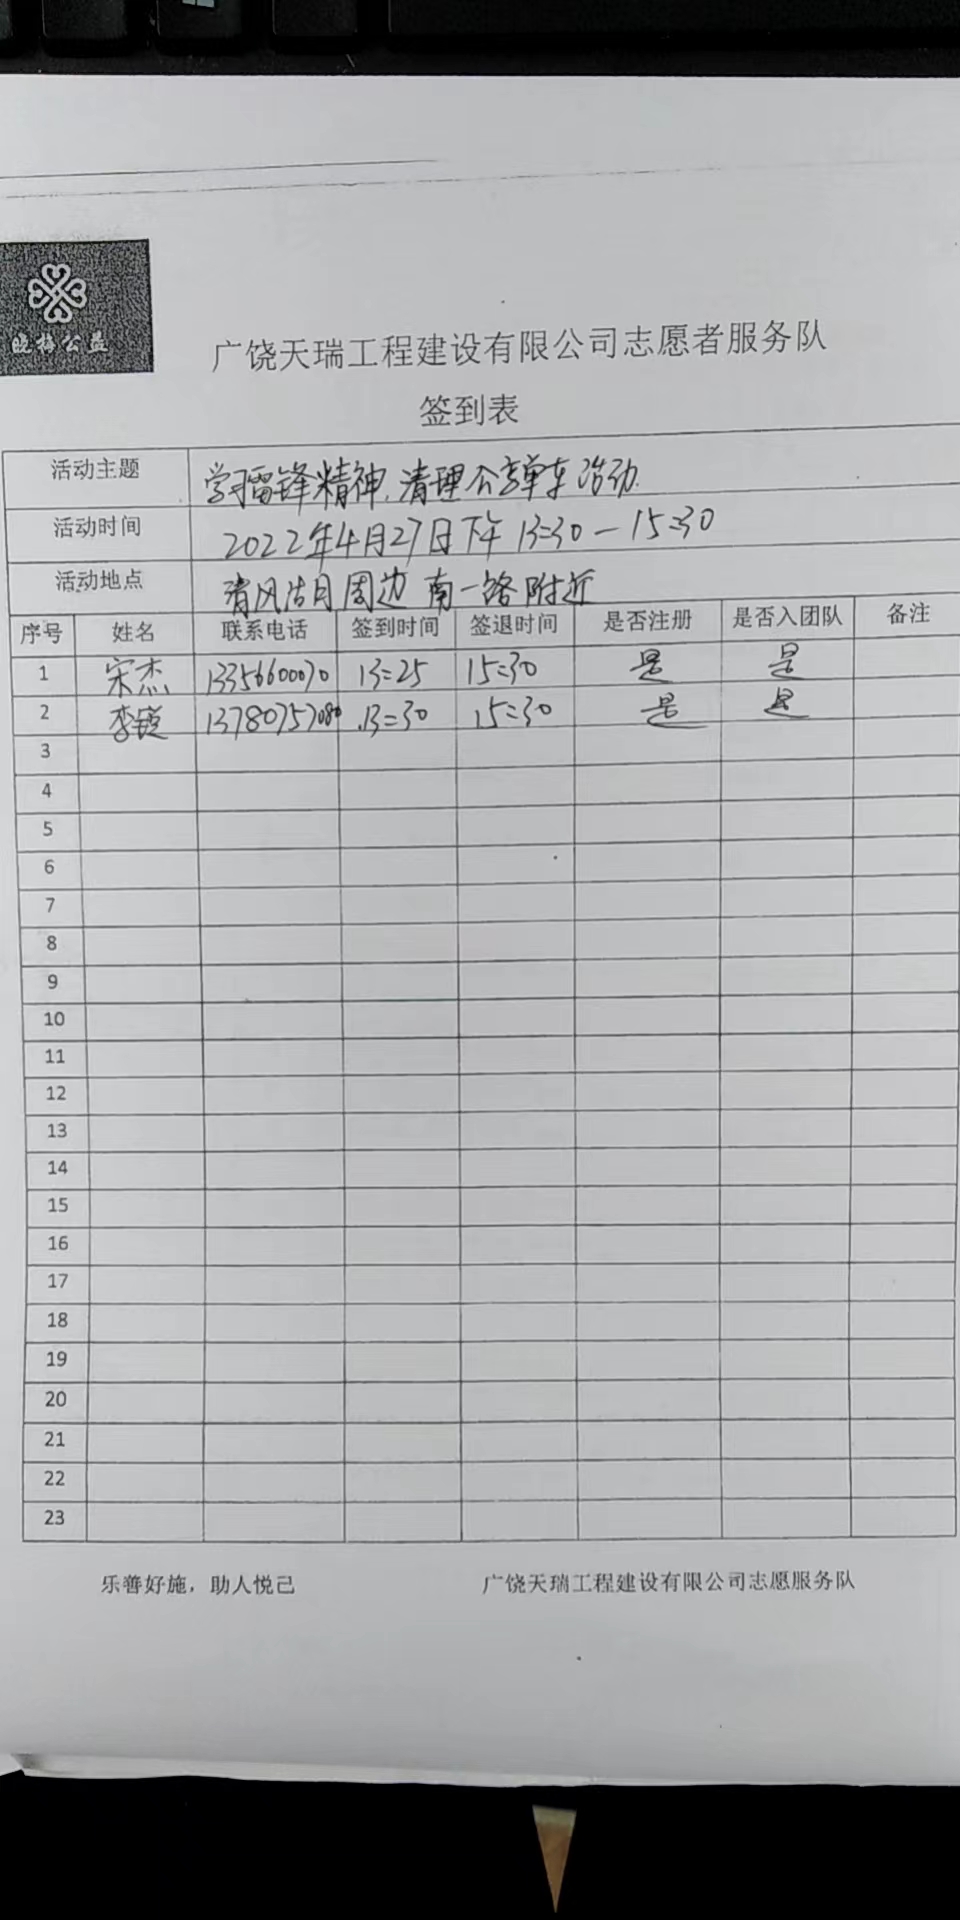 公益
广饶天瑞工程建设有限公司志愿者服务队
签到表
活动主题 学习雷锋精神,清理公享单车活动.
活动时间 2022年4月27日下午 13:30—15:30
活动地点 清风洁月周边 南一路附近
序号 姓名 联系电话 签到时间 签退时间 是否注册 是否入团队 备注
1 宋杰 13356600070 13:25 15:30 是 是
2 李 13780757080 13:30 15:30 是 是
3
4
5
6
7
8
9
10
11
12
13
14
15
16
17
18
19
20
21
22
23
乐善好施，助人悦己 广饶天瑞工程建设有限公司志愿服务队